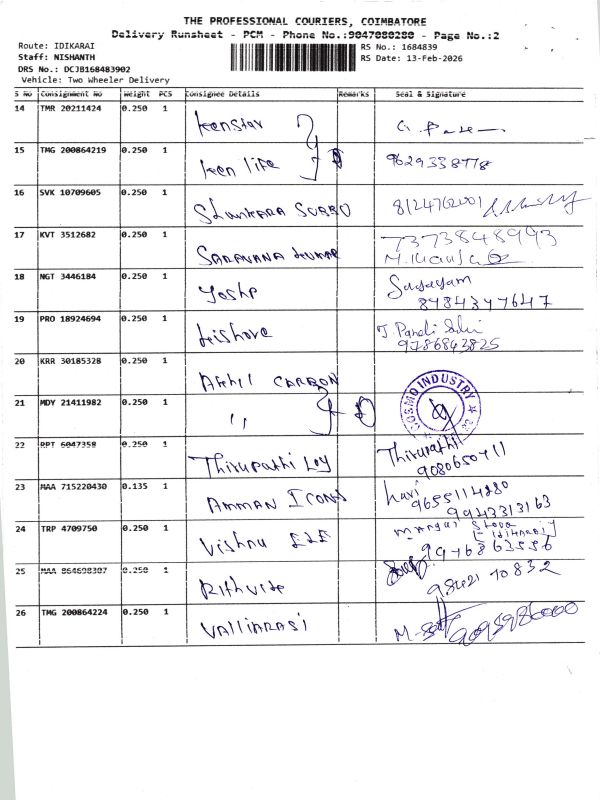 THE PROFESSIONAL COURIERS, COIMBATORE
Delivery Runsheet - PCM - Phone No.:9047080280 - Page No.:2
Route: IDIKARAI
RS No.: 1684839
Staff: NISHANTH
RS Date: 13-Feb-2026
DRS No.: DCJB168483902
Vehicle: Two Wheeler Delivery
S No Consignment No Weight PCS Consignee Details Remarks Seal & Signature
14 TMR 20211424 0.250 1 Kenstar
15 TMG 200864219 0.250 1 Keen life 9629338778
16 SVK 10709605 0.250 1 Shankara SUBBO
17 KVT 3512682 0.250 1 SARAVANA KUMAR 7373848993
18 NGT 3446184 0.250 1 Yoshp Sagayam
8484347647
19 PRO 18924694 0.250 1 Kishore J. Pandi
9786843825
20 KRR 30185328 0.250 1 AKHIL CARBON
21 MDY 21411982 0.250 1 ,, COSMO INDUSTRY
22 RPT 6047358 0.250 1 Thirupathi Loy Thirupathi
9080650711
23 MAA 715220430 0.135 1 AMMAN ICONS hari 9655114280
9943313163
24 TRP 4709750 0.250 1 Vishnu ELE
9976863556
25 MAA 864698307 0.250 1 Rithvik 98421 70832
26 TMG 200864224 0.250 1 VALLIARASI